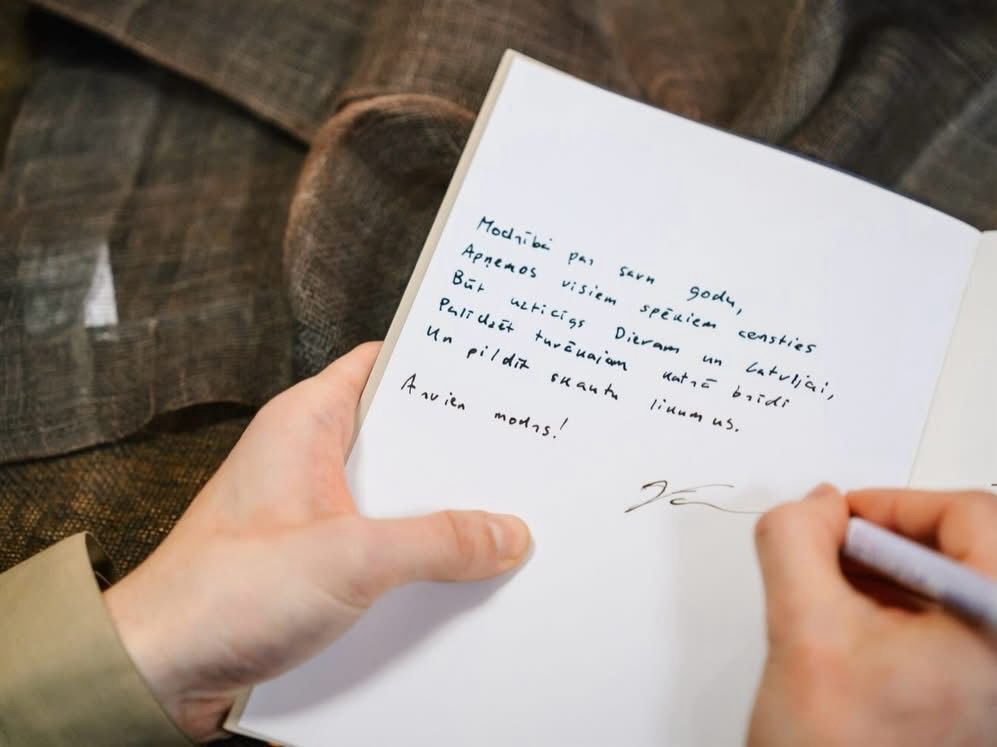 Modrībā par savu godu,
Apņemos visiem spēkiem censties
Būt uzticīgs Dievam un Latvijai,
Palīdzēt tuvākajam katrā brīdī
Un pildīt skautu likumus.
Arvien modrs!